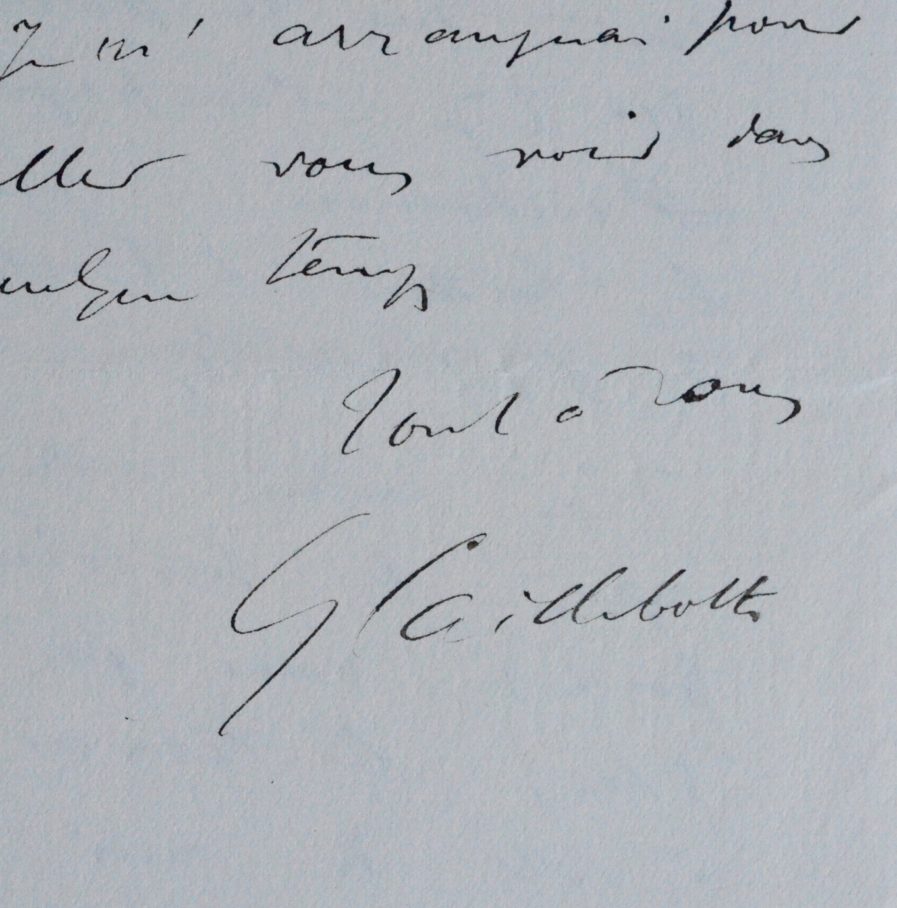 Je m'arrangerai pour
aller vous voir dans
quelque temps
Tout à vous
G Caillebotte